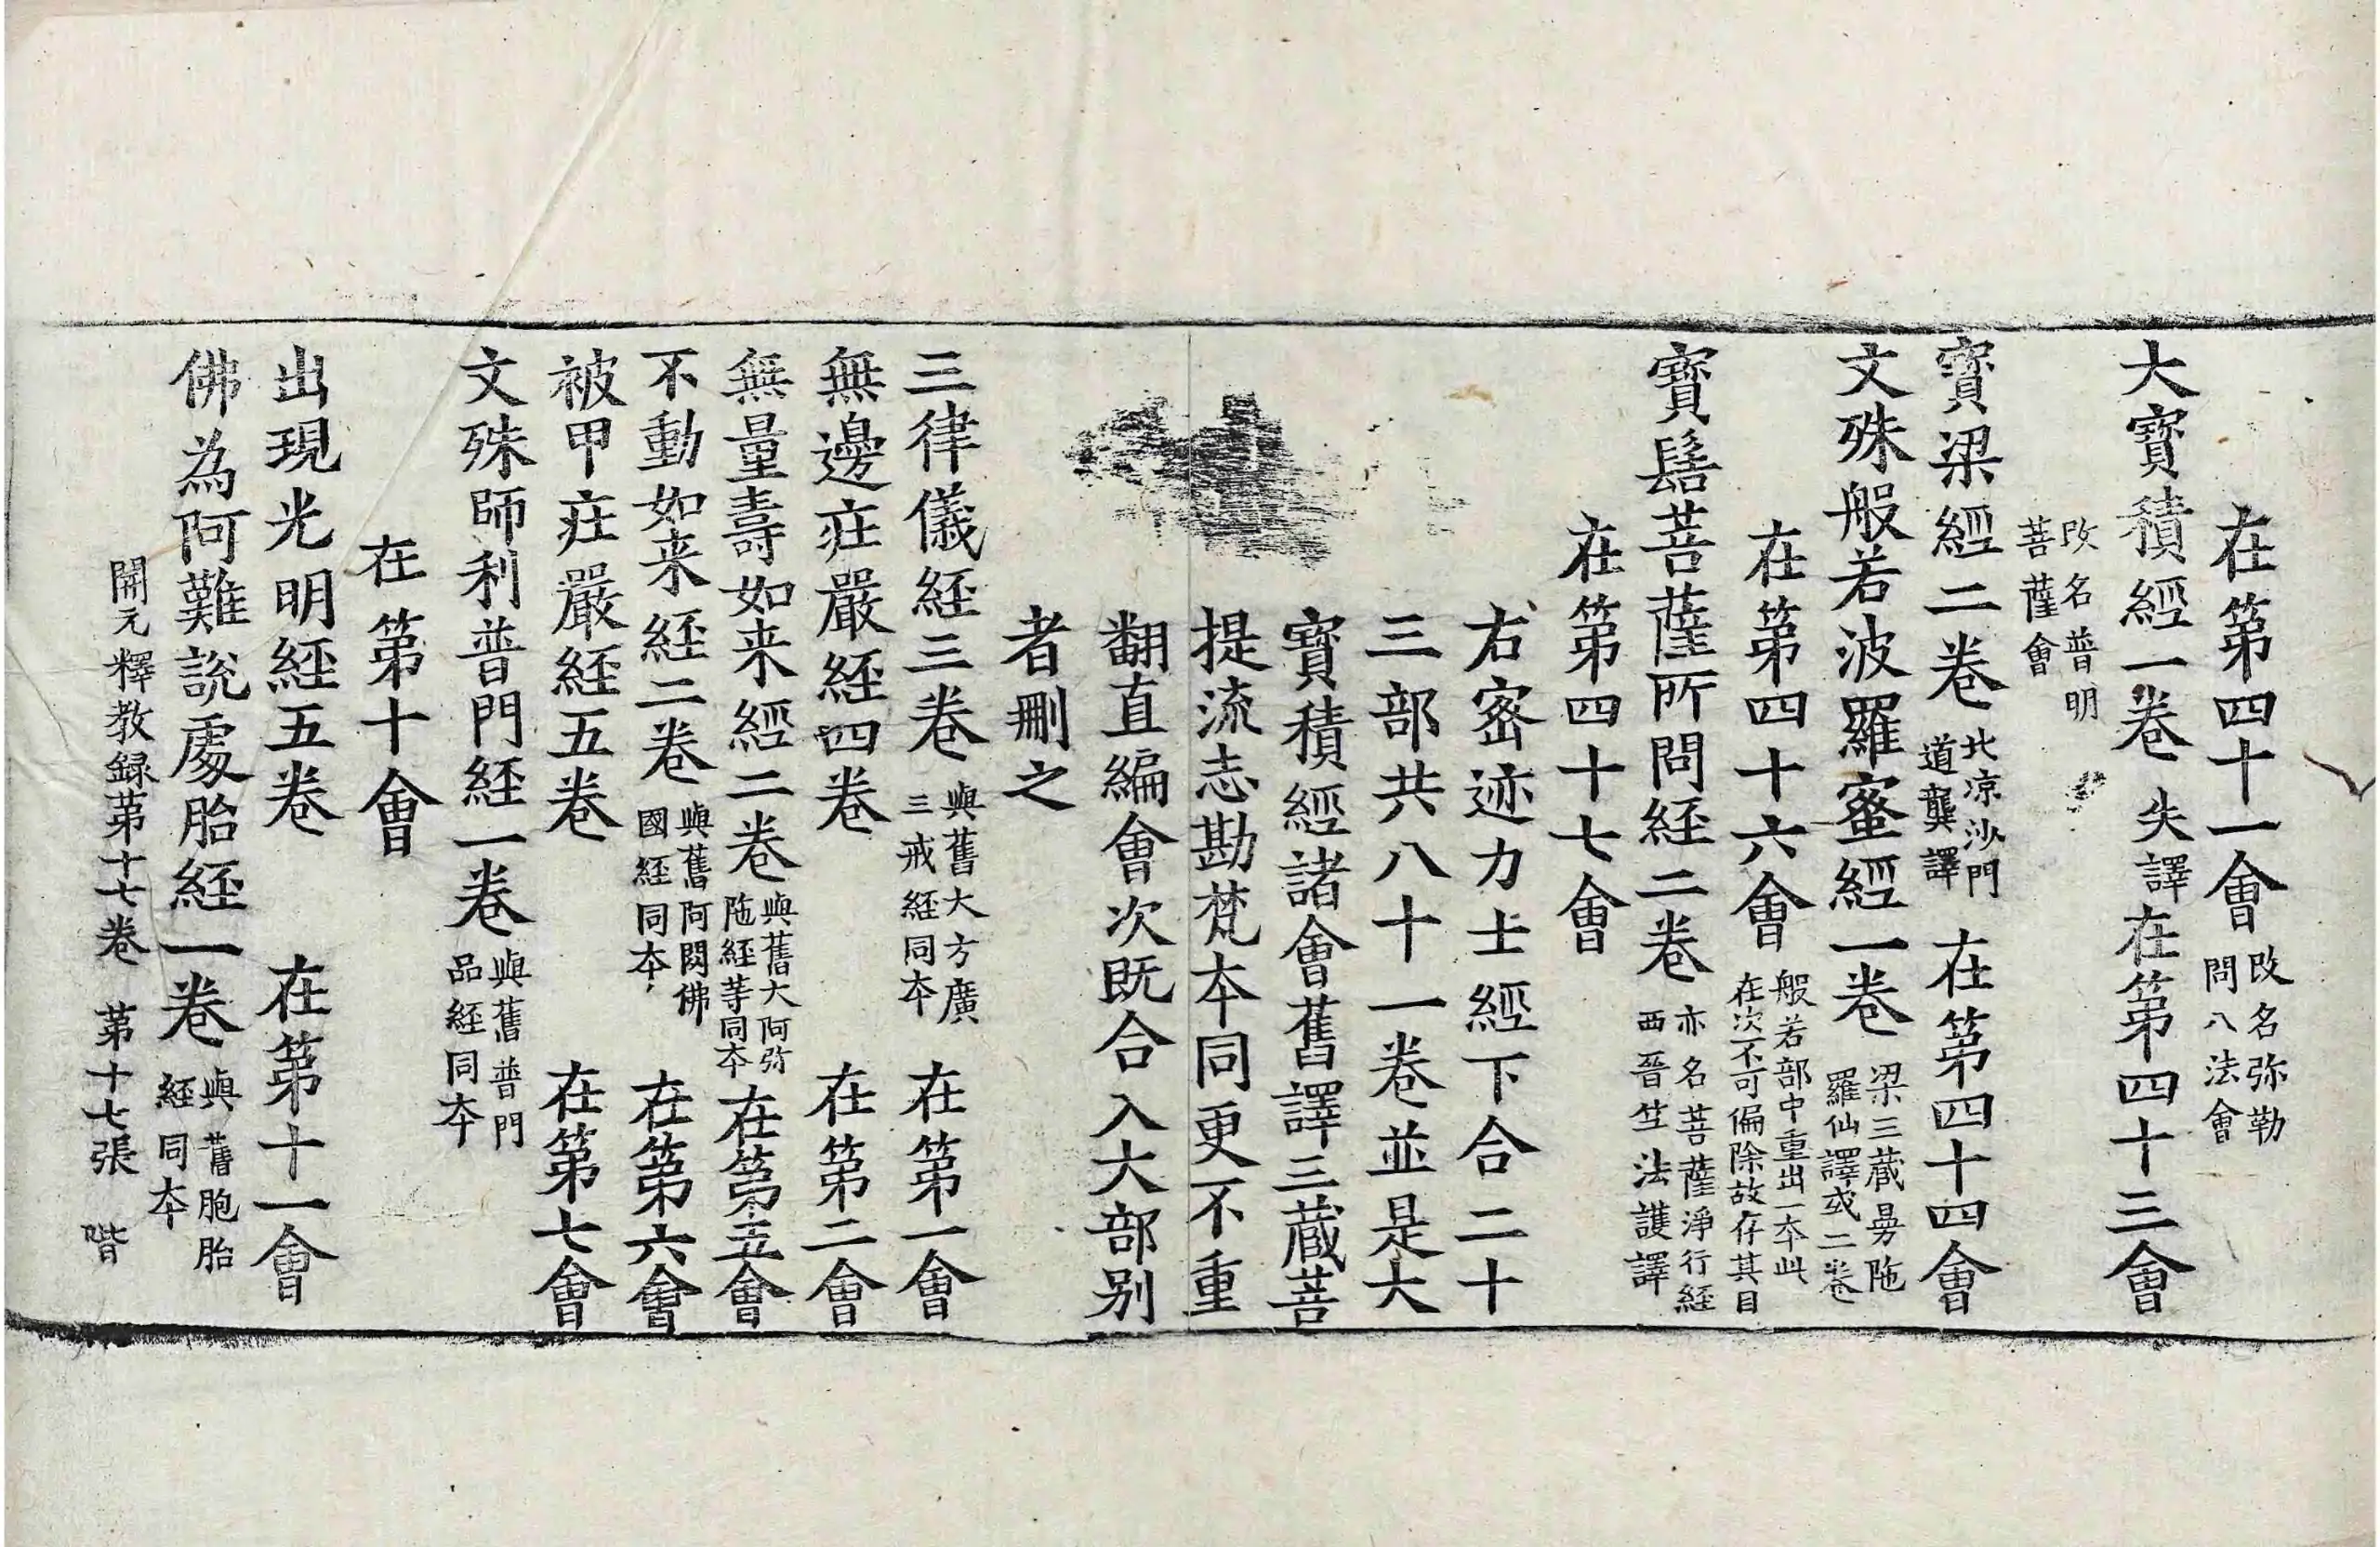 在第四十一會改名弥勒問八法會
大寶積經一卷失譯在第四十三會
改名普明菩薩會
寶梁經二卷北涼沙門道龔譯在第四十四會
文殊般若波羅蜜經一卷梁三藏曼陁羅仙譯或二卷
在第四十六會般若部中重出一本此在次不可偏除故存其目
寶髻菩薩所問経二卷亦名菩薩淨行経西晉竺法護譯
在第四十七會
右密迹力士經下合二十
三部共八十一卷並是大
寶積經諸會舊譯三藏菩
提流志勘梵本同更不重
翻直編會次既合入大部別
者刪之
三律儀経三卷與舊大方廣三戒経同本在第一會
無邊莊嚴経四卷在第二會
無量壽如来經二卷與舊大阿弥陁経等同本在第五會
不動如来経二卷與舊阿閦佛國経同本在第六會
被甲莊嚴経五卷在第七會
文殊師利普門経一卷與舊普門品経同本
在第十會
出現光明経五卷在第十一會
佛為阿難說處胎経一卷與舊胞胎経同本
開元釋教録第十七卷 第十七張 階